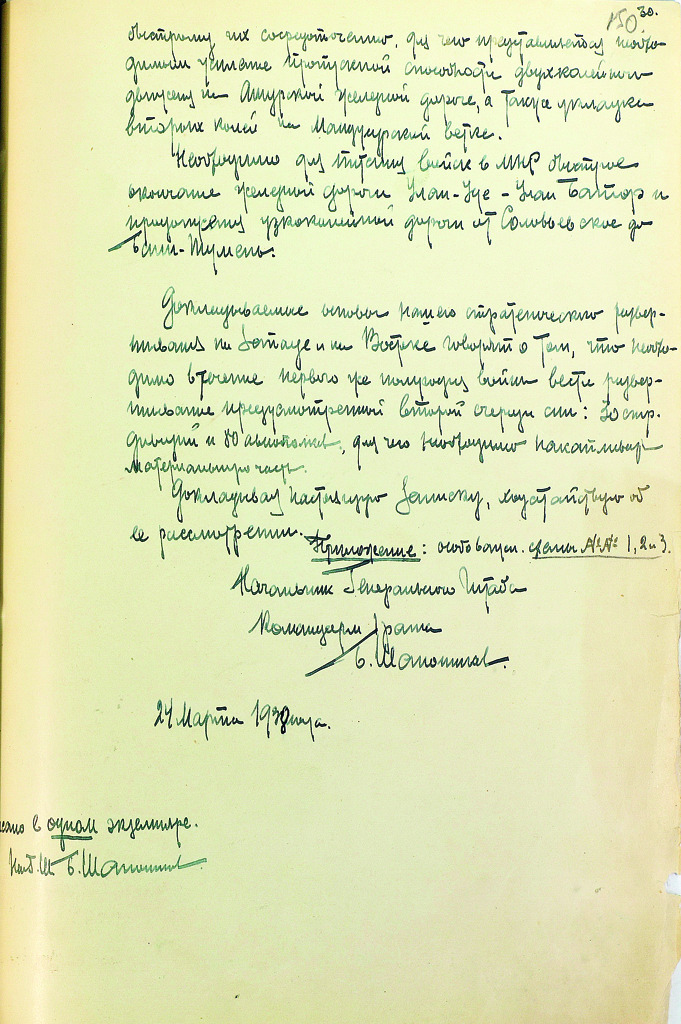 30.
150
быстрому их сосредоточению, для чего представляется необхо-
димым усиление пропускной способности двухколейного
движения на Амурской железной дороге, а также укладка
вторых колей на Манчжурской ветке.
Необходимо для питания войск в МНР быстрое
окончание железной дороги Улан-Удэ - Улан Батор и
продолжения узкоколейной дороги от Соловьевское до
Баин-Тумень.
Докладываемые основы нашего стратегического развер-
тывания на Западе и на Востоке говорят о том, что необхо-
димо в течение первого же полугодия войны вести развер-
тывание предусмотренной второй очереди сил: 30 стр.
дивизий и 80 авиополков, для чего необходимо накапливать
материальную часть.
Докладывая настоящую записку, ходатайствую об
ее рассмотрении.
Приложение: схемы №№ 1, 2 и 3.
Начальник Генерального Штаба
Командарм 1 ранга
Б. Шапошников.
24 Марта 1938 года.
в одном экземпляре.
Б. Шапошников